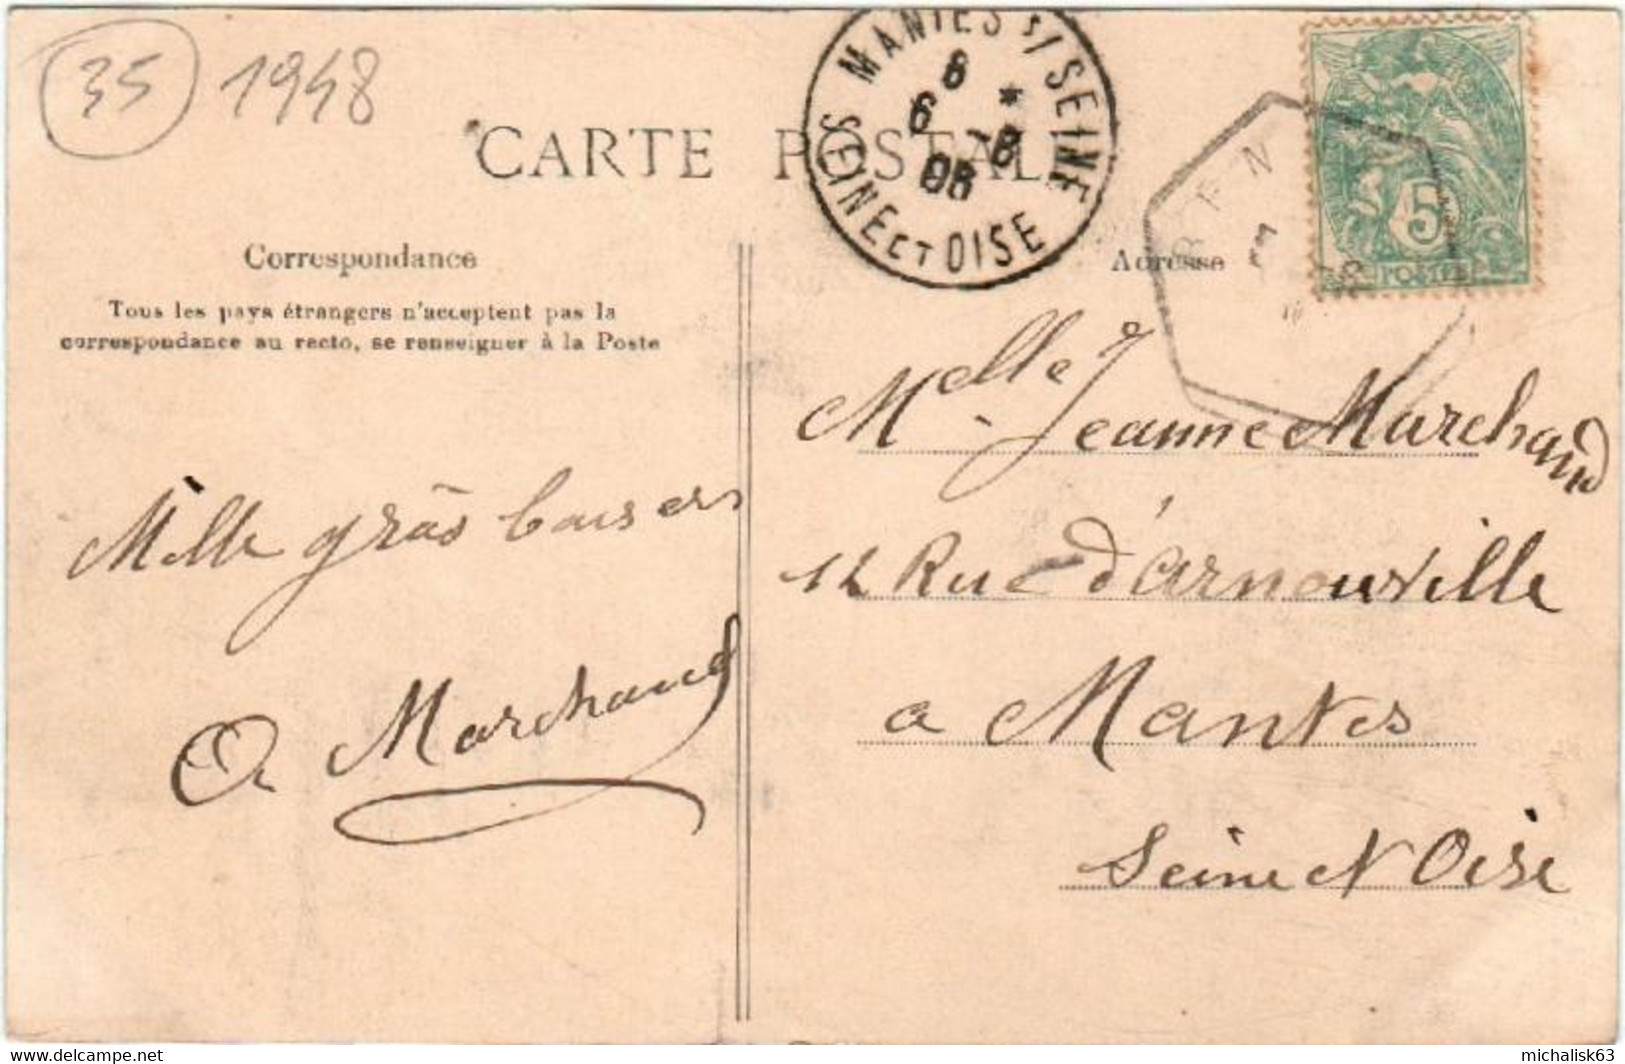 35 1948
CARTE POSTALE
MANTES s/ SEINE
6 *
6 -8
06
SEINE ET OISE
REN
5
POSTES
Correspondance
Adresse
Tous les pays étrangers n'acceptent pas la
correspondance au recto, se renseigner à la Poste
Melle Jeanne Marchand
Mille gros baisers
12 Rue d'Arnouville
Marchand
a Mantes
Seine & Oise
michalisk63